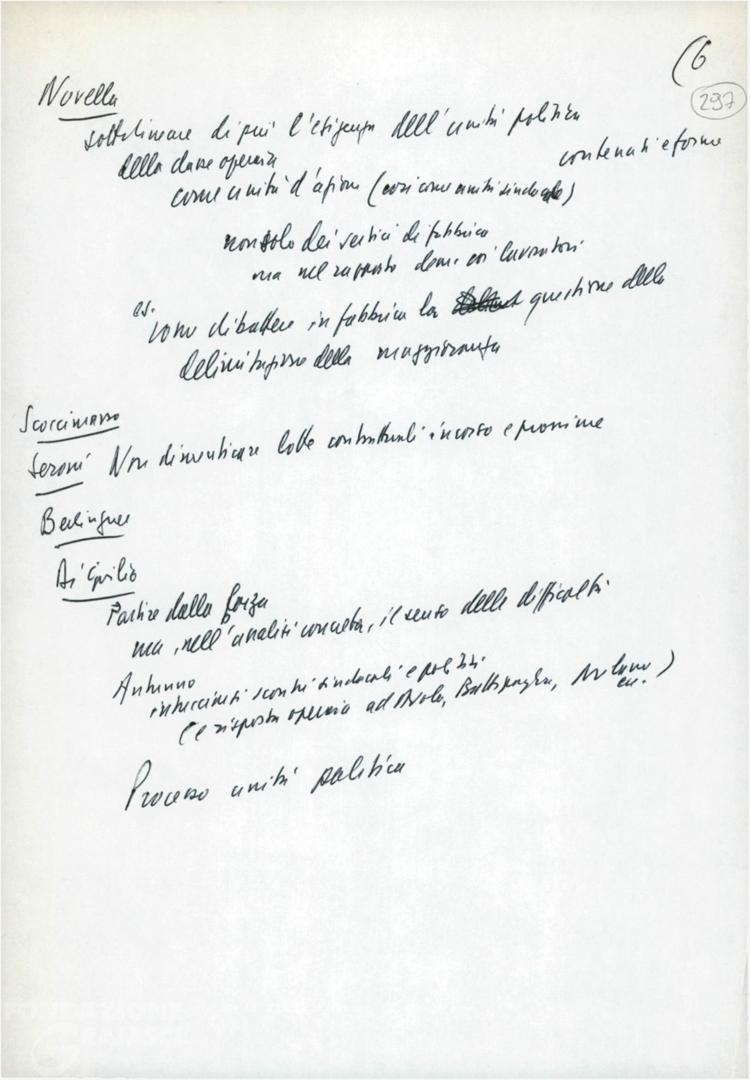 (6
297
Novella
sottolineare di più l'esigenza dell'unità politica
della classe operaia
contenuti e forme
come unità d'azione (così come unità sindacale)
non solo dei vertici di fabbrica
ma nel rapporto dem. coi lavoratori
es.
come dibattere in fabbrica la questione della
delimitazione della maggioranza
Scoccimarro
Seroni Non dimenticare lotte contrattuali in corso e prossime
Berlinguer
Di Giulio
Partire dalla forza
ma, nell'analisi concreta, il senso delle difficoltà
Autunno
intrecciati scontri sindacali e politici
(e risposta operaia ad Avola, Battipaglia, Milano
ecc.)
Processo unità politica
FONDAZIONE